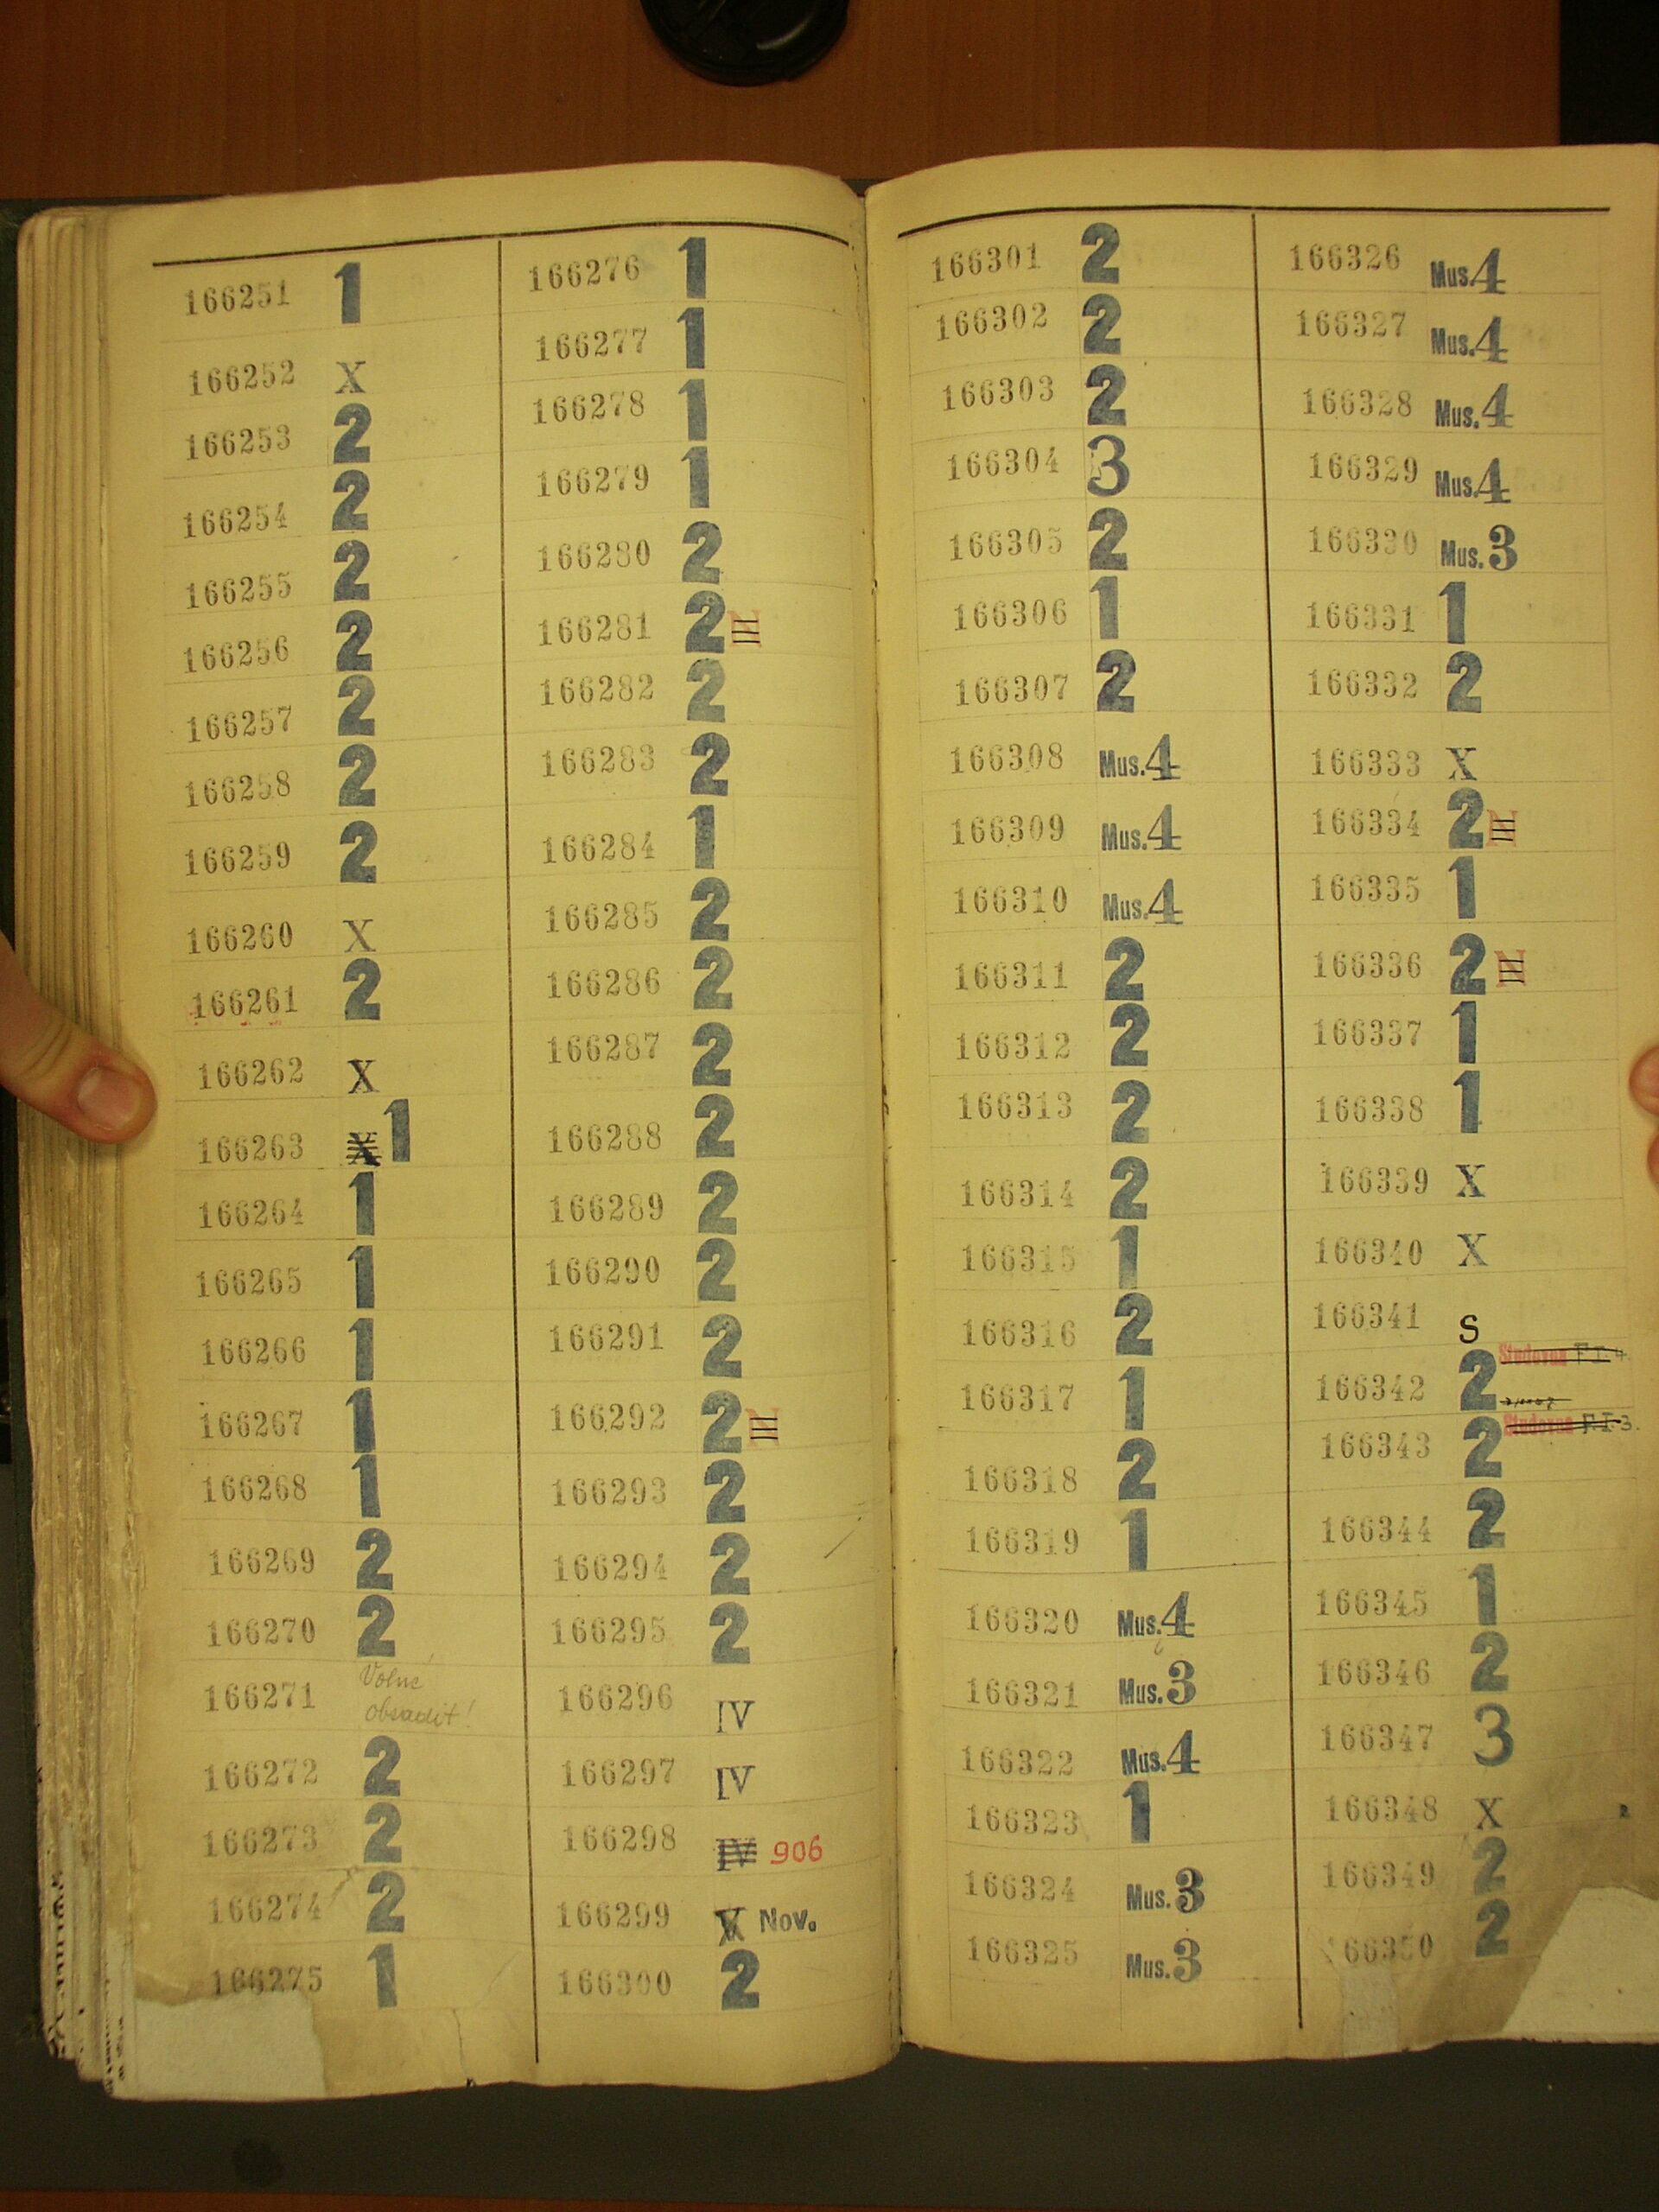 166251 1
166252 X
166253 2
166254 2
166255 2
166256 2
166257 2
166258 2
166259 2
166260 X
166261 2
166262 X
166263 X 1
166264 1
166265 1
166266 1
166267 1
166268 1
166269 2
166270 2
166271 Volné
obsadit!
166272 2
166273 2
166274 2
166275 1
166276 1
166277 1
166278 1
166279 1
166280 2
166281 2 N
166282 2
166283 2
166284 1
166285 2
166286 2
166287 2
166288 2
166289 2
166290 2
166291 2
166292 2 N
166293 2
166294 2
166295 2
166296 IV
166297 IV
166298 IV 906
166299 X Nov.
166300 2
166301 2
166302 2
166303 2
166304 3
166305 2
166306 1
166307 2
166308 Mus.4
166309 Mus.4
166310 Mus.4
166311 2
166312 2
166313 2
166314 2
166315 1
166316 2
166317 1
166318 2
166319 1
166320 Mus.4
166321 Mus.3
166322 Mus.4
166323 1
166324 Mus.3
166325 Mus.3
166326 Mus.4
166327 Mus.4
166328 Mus.4
166329 Mus.4
166330 Mus.3
166331 1
166332 2
166333 X
166334 2 N
166335 1
166336 2 N
166337 1
166338 1
166339 X
166340 X
166341 S
166342 2 Studovna F.I.4.
166343 2 Studovna F.I.3.
166344 2
166345 1
166346 2
166347 3
166348 X
166349 2
166350 2